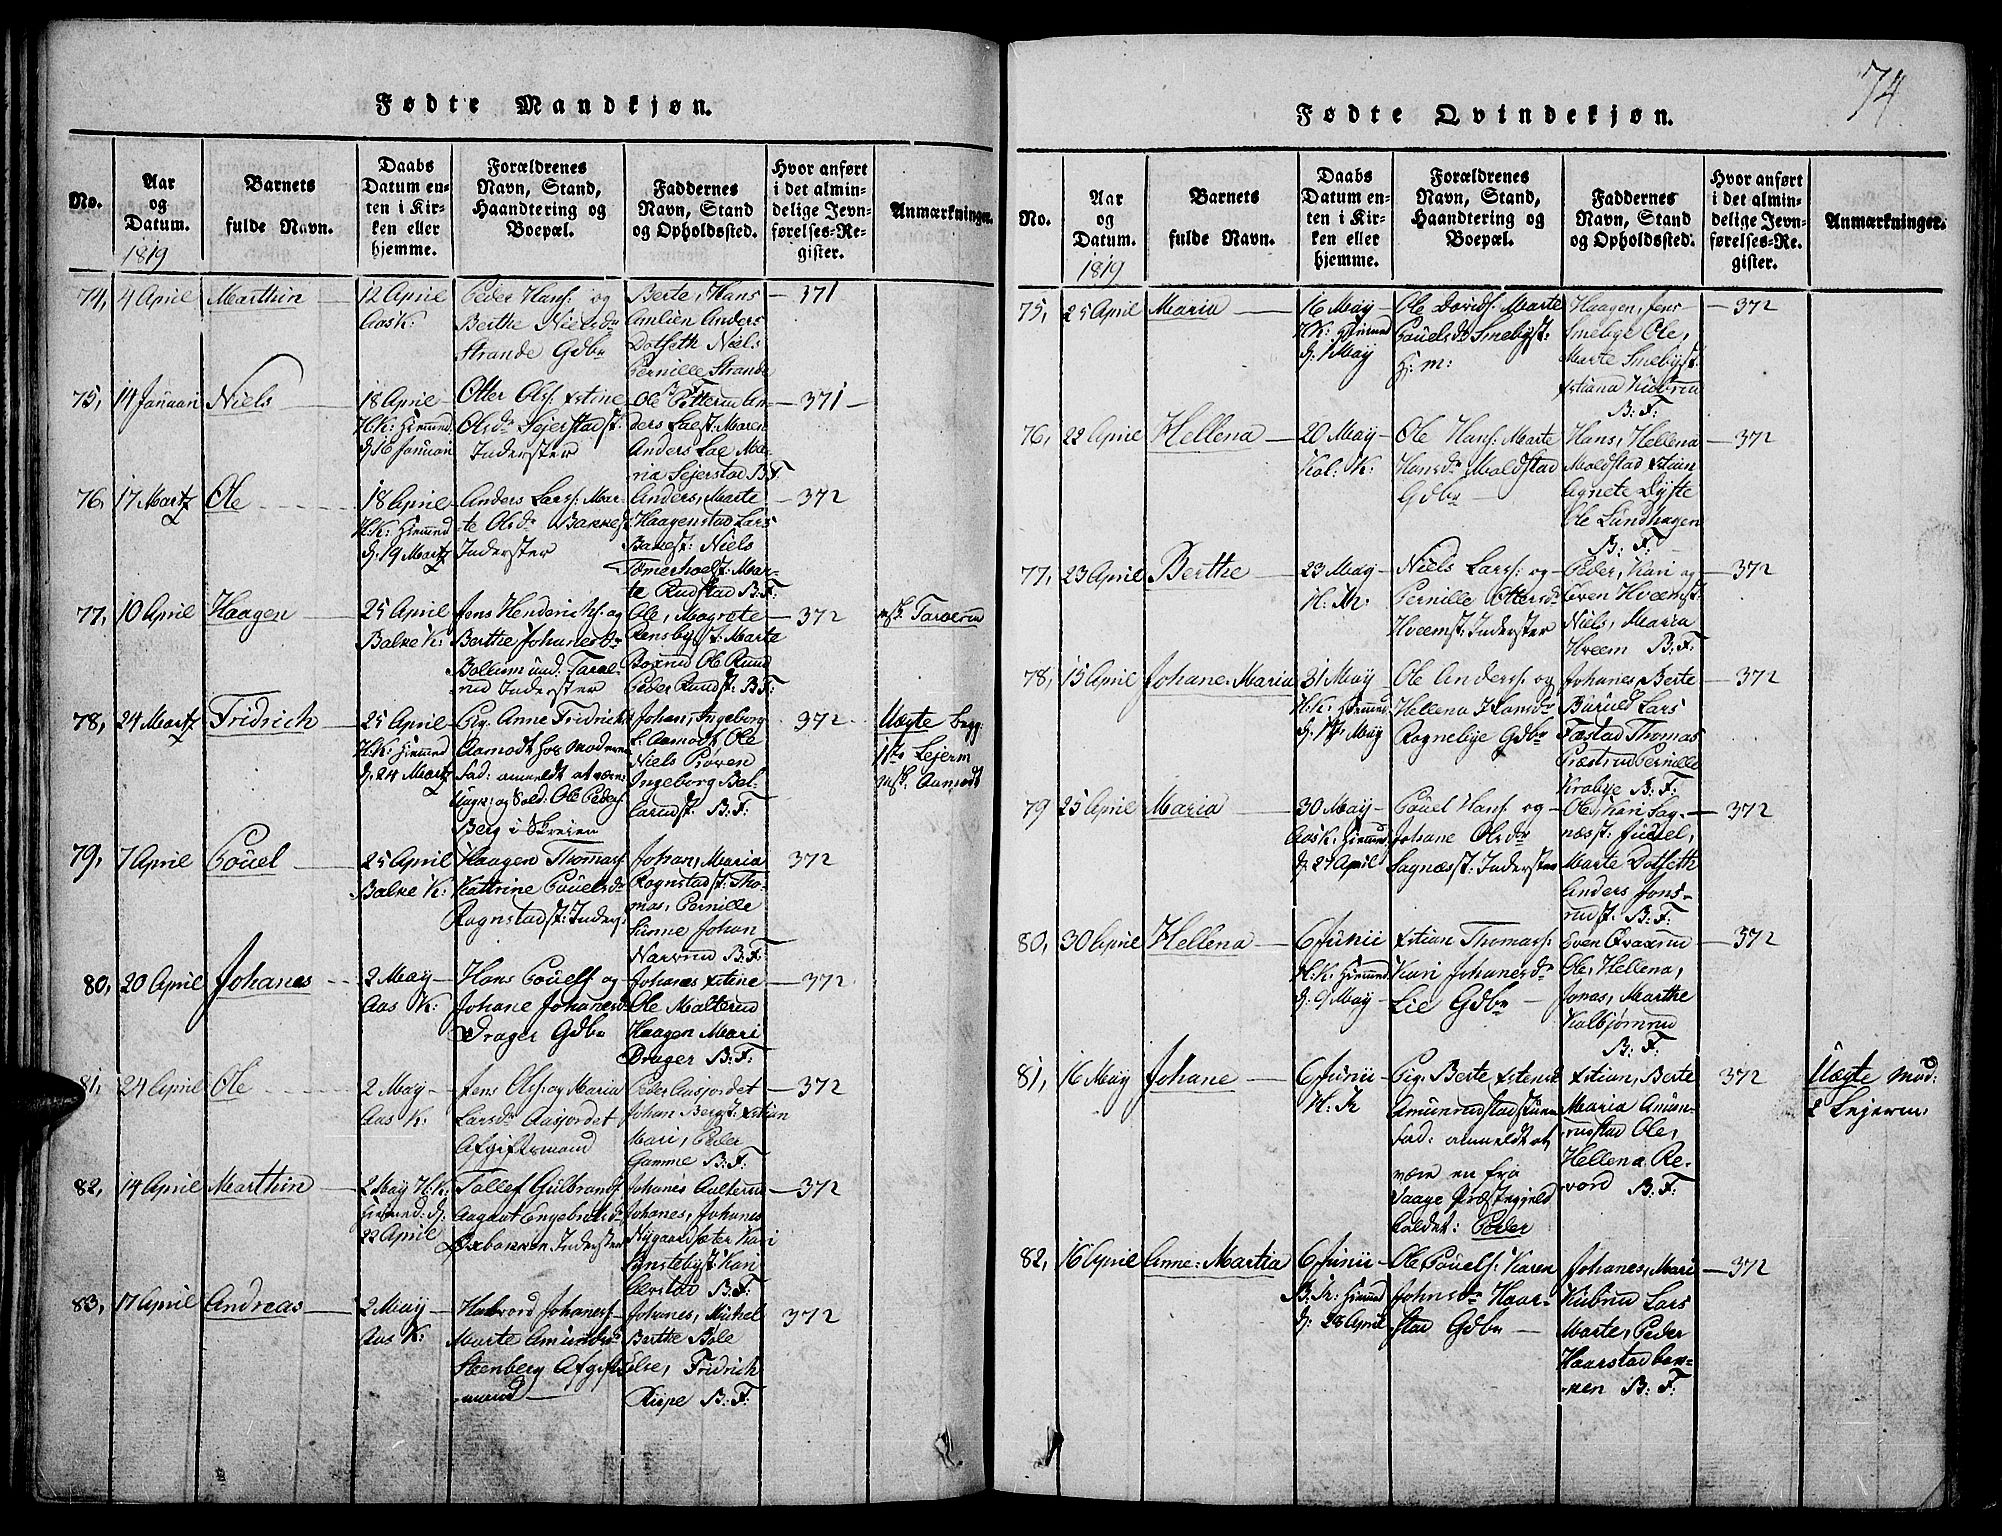 Fødte Mandkjøn.
No.
Aar og Datum.
1819
Barnets fulde Navn.
Daabs Datum enten i Kirken eller hjemme.
Forældrenes Navn, Stand, Haandtering og Boepæl.
Faddernes Navn, Stand og Opholdssted.
Hvor anført i det almindelige Jevnførelses-Register.
Anmærkninger.
74, 4 April Marthin 12 April Aas K:
Peder Hans: og
Berthe Nielsdr
Strande Gdbr
Berte, Hans
Amlien Anders
Dotseth Niels
Pernille Strande
B: F:
371
75, 14 Januari Niels 18 April
H.K: Hiemmed
d: 16 Januari
Otter Ols: Estine
Olsdr Sejerstadst:
Inderster
Ole Pitterud An-
ders Laest: Maren
Anders Lae Ma-
ria Sejerstad B:F:
371
76, 17 Martz Ole 18 April
H.K: Hiemmed
d: 19 Martz
Anders Lars: Mar-
te Olsdr Bakkest:
Inderster
Anders, Marte
Haagenstad Lars
Bakest: Niels
Tømerhoelst: Mar-
te Rudstad B:F:
372
77, 10 April Haagen 25 April
Balke K:
Jens Henderichs: og
Berthe Johanesdr
Bollum und: Tarae-
rud Inderster
Ole, Magrete
Rensbyst: Marte
Boxrud Ole Ruud
Peder Ruudst: B:F:
372
78, 24 Martz Fridrich 25 April
H.K: Hiemmed
d: 24 Martz
Pig. Anne Fridrichsd
Aamodt hos Moderen
Fad: anmeldt at være:
Ungk: og Sold: Ole Peders:
Berg i Skreien
Johan, Ingeborg
L: Aamodt Ole
Niels Proven
Ingeborg Bal-
larudst: B: F:
372
Uægte begg:
1ste Lejerm
79, 7 April Pouel 25 April
Balke K:
Haagen Thomas:
Kattrine Pouelsdr
Rognstadst: Inders:
Johan, Maria
Rognstadst: Tho-
mas, Pernille
Lunne Johan
Narvrud B:F:
372
80, 20 April Johanes 2 May
Aas K:
Hans Pouels: og
Johane Johanesd
Drager Gdbr
Johanes Estine
Ole Malterud
Haagen Mari
Drager B: F:
372
81, 24 April Ole 2 May
Aas K:
Jens Ols: og Maria
Larsdr Aasjordet
Afgiftsmand
Peder Aasjordet
Johan Bergst: Estian
Mari, Peder
Gamme B: F:
372
82, 14 April Marthin 2 May H.K:
Hiemmed: d:
22 April
Tollef Gulbrands:
Aagaat Engebretsdr
Øxbakken Inderster
Johanes Aulterud
Johanes, Johanes
Nygaardsæter Kari
372
83, 17 April Andreas 2 May
Aas K:
Halvord Johanes:
Marte Amundsdr
Steenberg Afgifts
mand
Johanes, Michel
Berthe Bøle
Else, Fridrich
Kiipe B: F:
372
74
Fødte Qvindekjøn.
No.
Aar og Datum.
1819
Barnets fulde Navn.
Daabs Datum enten i Kirken eller hjemme.
Forældrenes Navn, Stand, Haandtering og Boepæl.
Faddernes Navn, Stand og Opholdssted.
Hvor anført i det almindelige Jevnførelses-Register.
Anmærkninger.
75, 25 April Maria 16 May
H.K: Hiemmed
d: 1 May
Ole Davids: Marte
Pouelsdr Smebyst:
H: m:
Haagen, Jens
Smebye Ole,
Marte Smebyst:
Estiana Kiubrud
B: F:
372
76, 22 April Hellena 20 May
Kol: K:
Ole Hans: Marte
Hansdr Moldstad
Gdbr
Hans, Hellena
Moldstad Estian
Agnete Dyste
Ole Lundhagen
B: F:
372
77, 23 April Berthe 23 May
H: K:
Niels Lars: og
Pernille Ottersdr
Hveemst: Inderster
Peder, Kari og
Even Hveemst:
Niels, Maria
Hveem B: F:
372
78, 15 April Johane Maria 31 May
H.K: Hiemmed
Ole Anders: og
Hellena Hansdr
Rognebye Gdbr
Johanes, Berte
Buruld Lars
Fæstad Thomas
Præstrud Pernille
Krabye B: F:
372
79 25 April Maria 30 May
Aas K: Hiemmed
d: 27 April
Pouel Hans: og
Johane Olsdr
Sagnæsst: Inderster
Ole, Kari Sag-
næsst: Juuel,
Marte Dotseth
Anders Jons-
rudst. B: F:
372
80, 30 April Hellena 6 Junii
H.K: Hiemmed
d: 9 May
Estian Thomas:
Kari Johanesdr
Lie Gdbr
Even Qværud
Ole, Hellena,
Jonas, Marthe
Kalbjørnrud
B: F:
372
81, 16 May Johane 6 Junii
H: K
Pig. Berte Estensd
Amunrudstadstuen
Fad: anmeldt at
være en fra
Vaage Præstegield
Caldet: Peder
Estian, Berte
Maria Amun-
rustad Ole,
Hellena, Re-
vord B: F:
372
Uægte mod:
2 Lejerm:
82, 16 April Anne Martia 6 Junii
B.K: Hiemmed
d: 28 April
Ole Pouels: Karen
Johnsdr Haar-
stad Gdbr
Johanes, Mari
Kubrud Lars
Marte, Peder
Haarstad bak-
ken B: F:
372